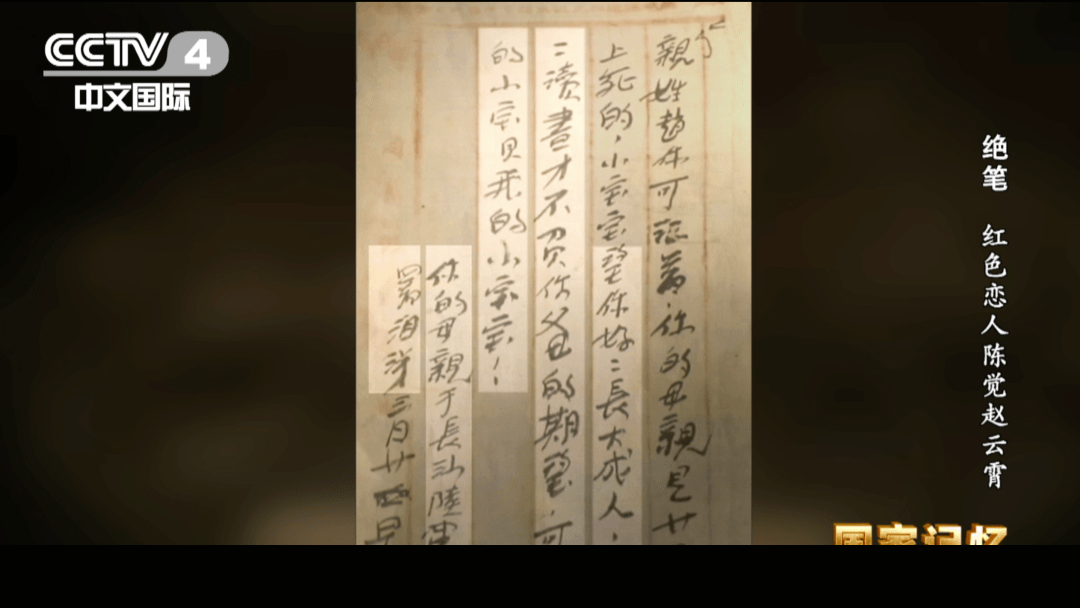 CCTV 4
中文国际
親姓趙你可記着,你的母親是廿
上死的,小宝宝望你好二長大成人,
二讀書才不負你父母的期望,可
的小宗貝我的小宗宝!
你的母親于長沙陸
署泪涕三月廿四早
绝笔 红色恋人陈觉赵云霄
国家记忆